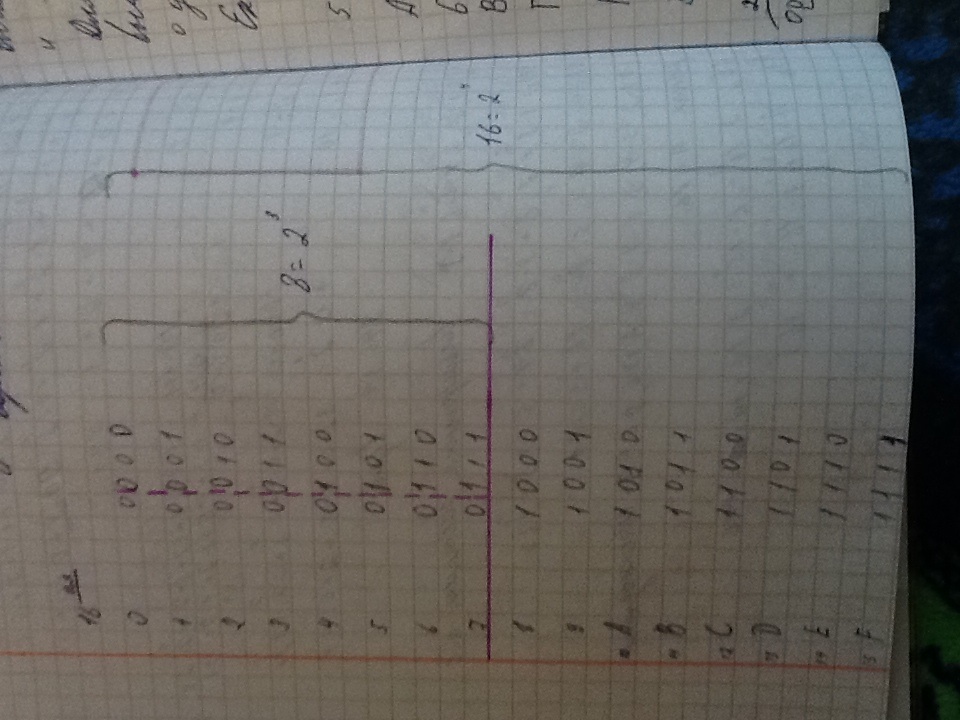 16
0 0000
1 0001
2 0010
3 0011
4 0100
5 0101
6 0110
7 0111
8 = 2³
8 1000
9 1001
10 A 1010
11 B 1011
12 C 1100
13 D 1101
14 E 1110
15 F 1111
16 = 2⁴